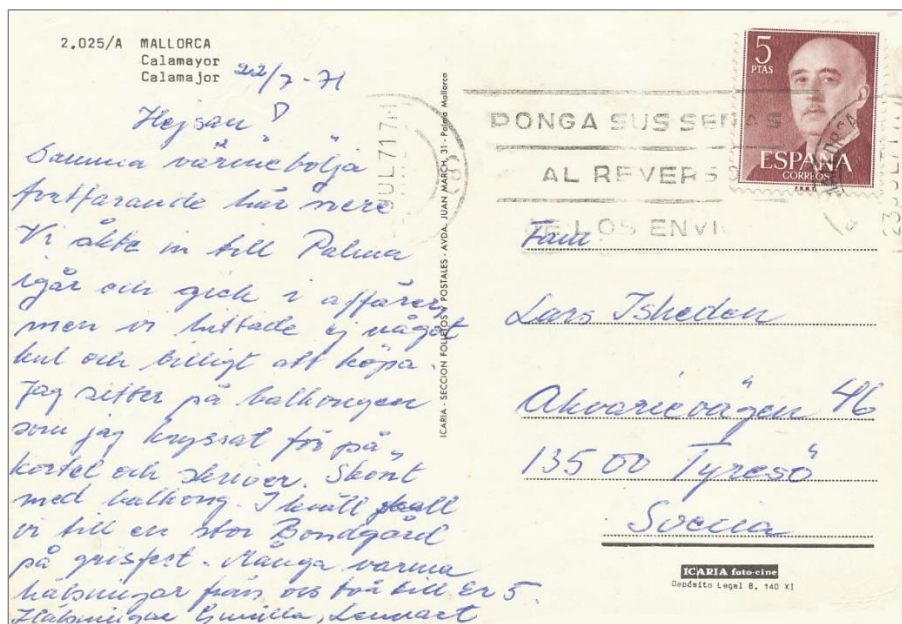 2.025/A MALLORCA
Calamayor
Calamajor
22/7-71
Hejsan!
Samma värmebölja
fortfarande här nere
Vi åkte in till Palma
igår och gick i affärer,
men vi hittade ej något
kul och billigt att köpa.
Jag sitter på balkongen
som jag kryssat för på
kortet och skriver. Skönt
med balkong. I kväll skall
vi till en stor Bondgård
på grisfest. Många varma
hälsningar från oss två till Er 5.
Hälsningar Gunilla, Lennart
ICARIA - SECCION FOLLETOS Y POSTALES - AVDA. JUAN MARCH, 31 - Palma Mallorca
5
PTAS
ESPAÑA
CORREOS
F.N.M.T.
PONGA SUS SEÑAS
AL REVERSO
DE LOS ENVI
JUL 71 17
23 JUL 71 17
Fam
Lars Isheden
Akvarievägen 46
135 00 Tyresö
Suecia
ICARIA foto-cine
Depósito Legal B. 140 XI